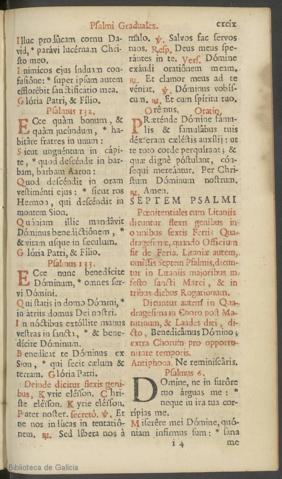 Psalmi Graduales. cxcix
Illuc producam cornu Da-
vid, * parávi lucérnam Chri-
sto meo.
Inimícos ejus índuam con-
fusióne: * super ipsum autem
efflorébit sanctificátio mea.
Glória Patri, & Fílio.
Psalmus 132.
ECce quàm bonum, &
quàm jucúndum, * ha-
bitáre fratres in unum:
Sicut unguéntum in cápi-
te, * quod descéndit in bar-
bam, barbam Aaron:
Quod descéndit in oram
vestiménti ejus: * sicut ros
Hermon, qui descéndit in
montem Sion.
Quóniam illic mandávit
Dóminus benedictiónem, *
& vitam usque in sæculum.
Glória Patri, & Fílio.
Psalmus 133.
ECce nunc benedícite
Dóminum, * omnes ser-
vi Dómini.
Qui statis in domo Dómini, *
in átriis domus Dei nostri.
In nóctibus extóllite manus
vestras in sancta, * & bene-
dícite Dóminum.
Benedícat te Dóminus ex
Sion, * qui fecit cælum &
terram. Glória Patri.
Deinde dicitur flexis geni-
bus, Kyrie eléison. Chri-
ste eléison. Kyrie eléison.
Pater noster. secretò. ℣. Et
ne nos indúcas in tentatió-
nem. ℟. Sed líbera nos à
malo. ℣. Salvos fac servos
tuos. Resp. Deus meus spe-
rántes in te. Vers. Dómine
exáudi oratiónem meam.
℟. Et clamor meus ad te
véniat. ℣. Dóminus vobís-
cum. ℟. Et cum spíritu tuo.
Orémus. Oratio.
PRæténde Dómine famu-
lis & famulábus tuis
déxteram cæléstis auxílii; ut
te toto corde perquírant; &
quæ dignè póstulant, cón-
sequi mereántur. Per Chri-
stum Dóminum nostrum.
℟. Amen.
SEPTEM PSALMI
Pœnitentiales cum Litaniis
dicuntur flexis genibus in
omnibus sextis Feriis Qua-
dragesimæ, quando Officium
fit de Feria. Litaniæ autem,
omissis septem Psalmis, dicun-
tur in Litaniis majoribus in
festo sancti Marci, & in
tribus diebus Rogationum.
Dicuntur autem in Qua-
dragesima in Choro post Ma-
tutinum, & Laudes dicto,
Benedicámus Dómino,
extra Chorum pro oppor-
tunitate temporis.
Antiphona. Ne reminiscáris.
Psalmus 6.
DOmine, ne in furóre
tuo árguas me: *
neque in ira tua cor-
rípias me.
Miserére mei Dómine, quó-
niam infírmus sum: * sana
i 4 me
Biblioteca de Galicia